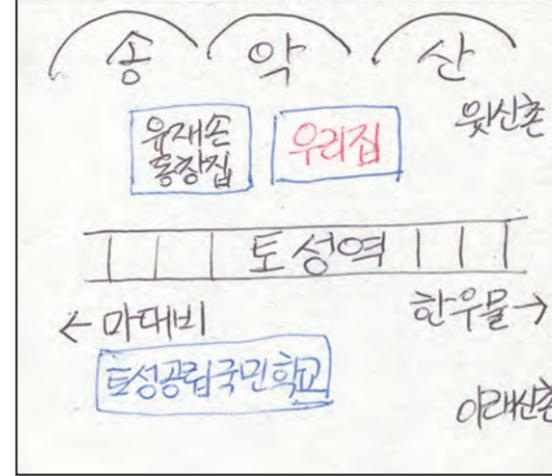 송 악 산
윗산촌
유재손
통장집
우리집
토성역
← 마대비
한우물 →
토성공립국민학교
아래산촌